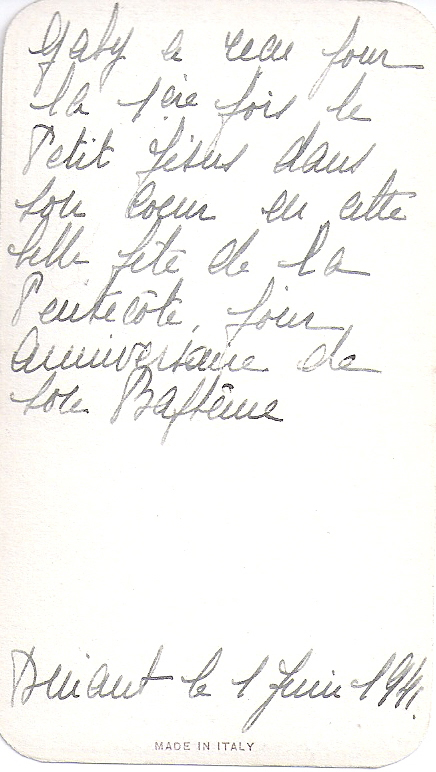 Gaby a recu pour
la 1ère fois le
Petit Jésus dans
son coeur en cette
belle fête de la
Pentecôte, jour
anniversaire de
son Baptême
Dinant le 1 Juin 1941.
MADE IN ITALY